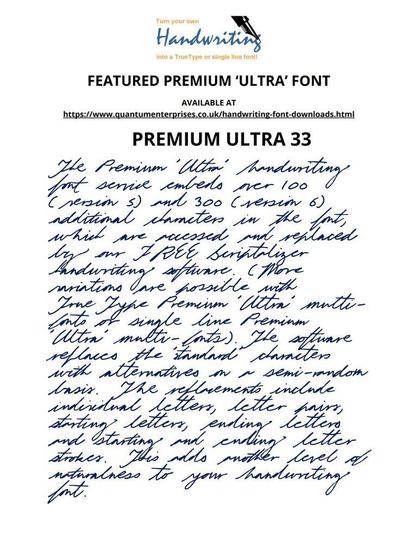 Turn your own
Handwriting
into a TrueType or single line font!
FEATURED PREMIUM ‘ULTRA’ FONT
AVAILABLE AT
https://www.quantumenterprises.co.uk/handwriting-font-downloads.html
PREMIUM ULTRA 33
The Premium 'Ultra' handwriting
font service embeds over 100
(version 5) and 300 (version 6)
additional characters in the font,
which are accessed and replaced
by our FREE Scriptalizer
handwriting software. (More
variations are possible with
True Type Premium 'Ultra' multi-
fonts or single line Premium
'Ultra' multi-fonts). The software
replaces the 'standard' characters
with alternatives on a semi-random
basis. The replacements include
individual letters, letter pairs,
starting letters, ending letters
and starting and ending letter
strokes. This adds another level of
naturalness to your handwriting
font.